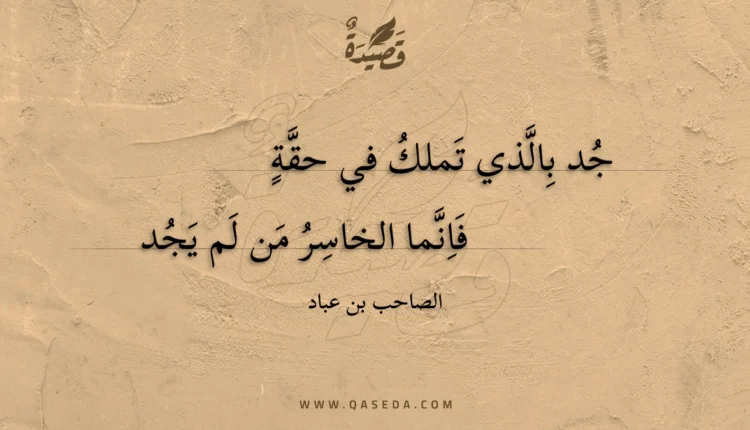 قَصِيدَةٌ
جُد بِالَّذي تَملكُ في حقَّةٍ
فَاِنَّما الخاسِرُ مَن لَم يَجُد
الصاحب بن عباد
WWW.QASEDA.COM